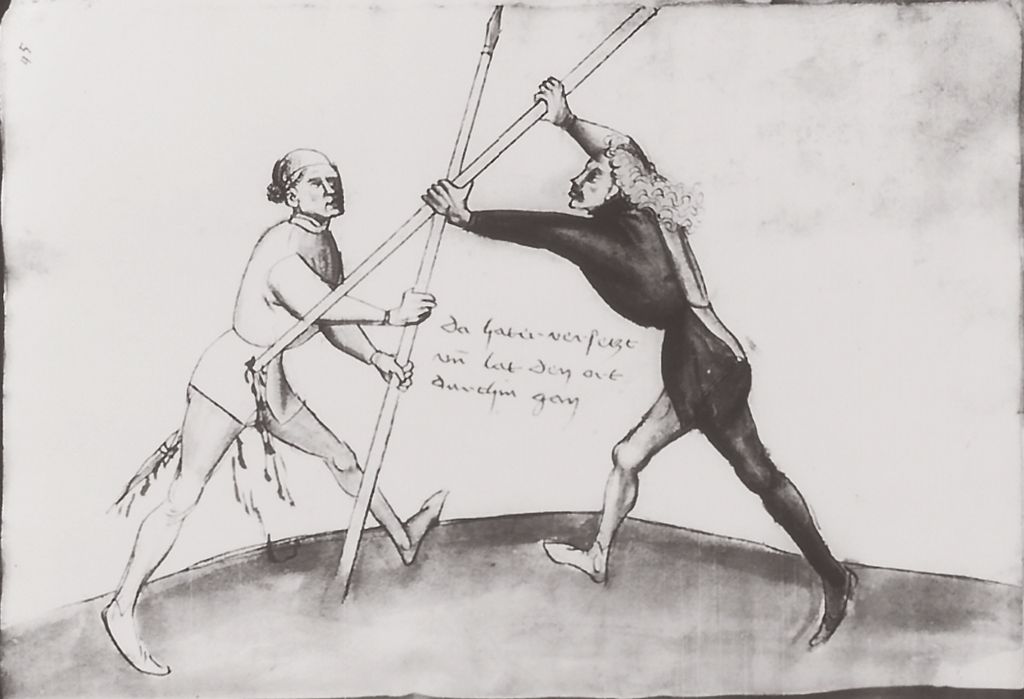 95
da hat er versetzt
vn̄ lat den ort
durch in gan